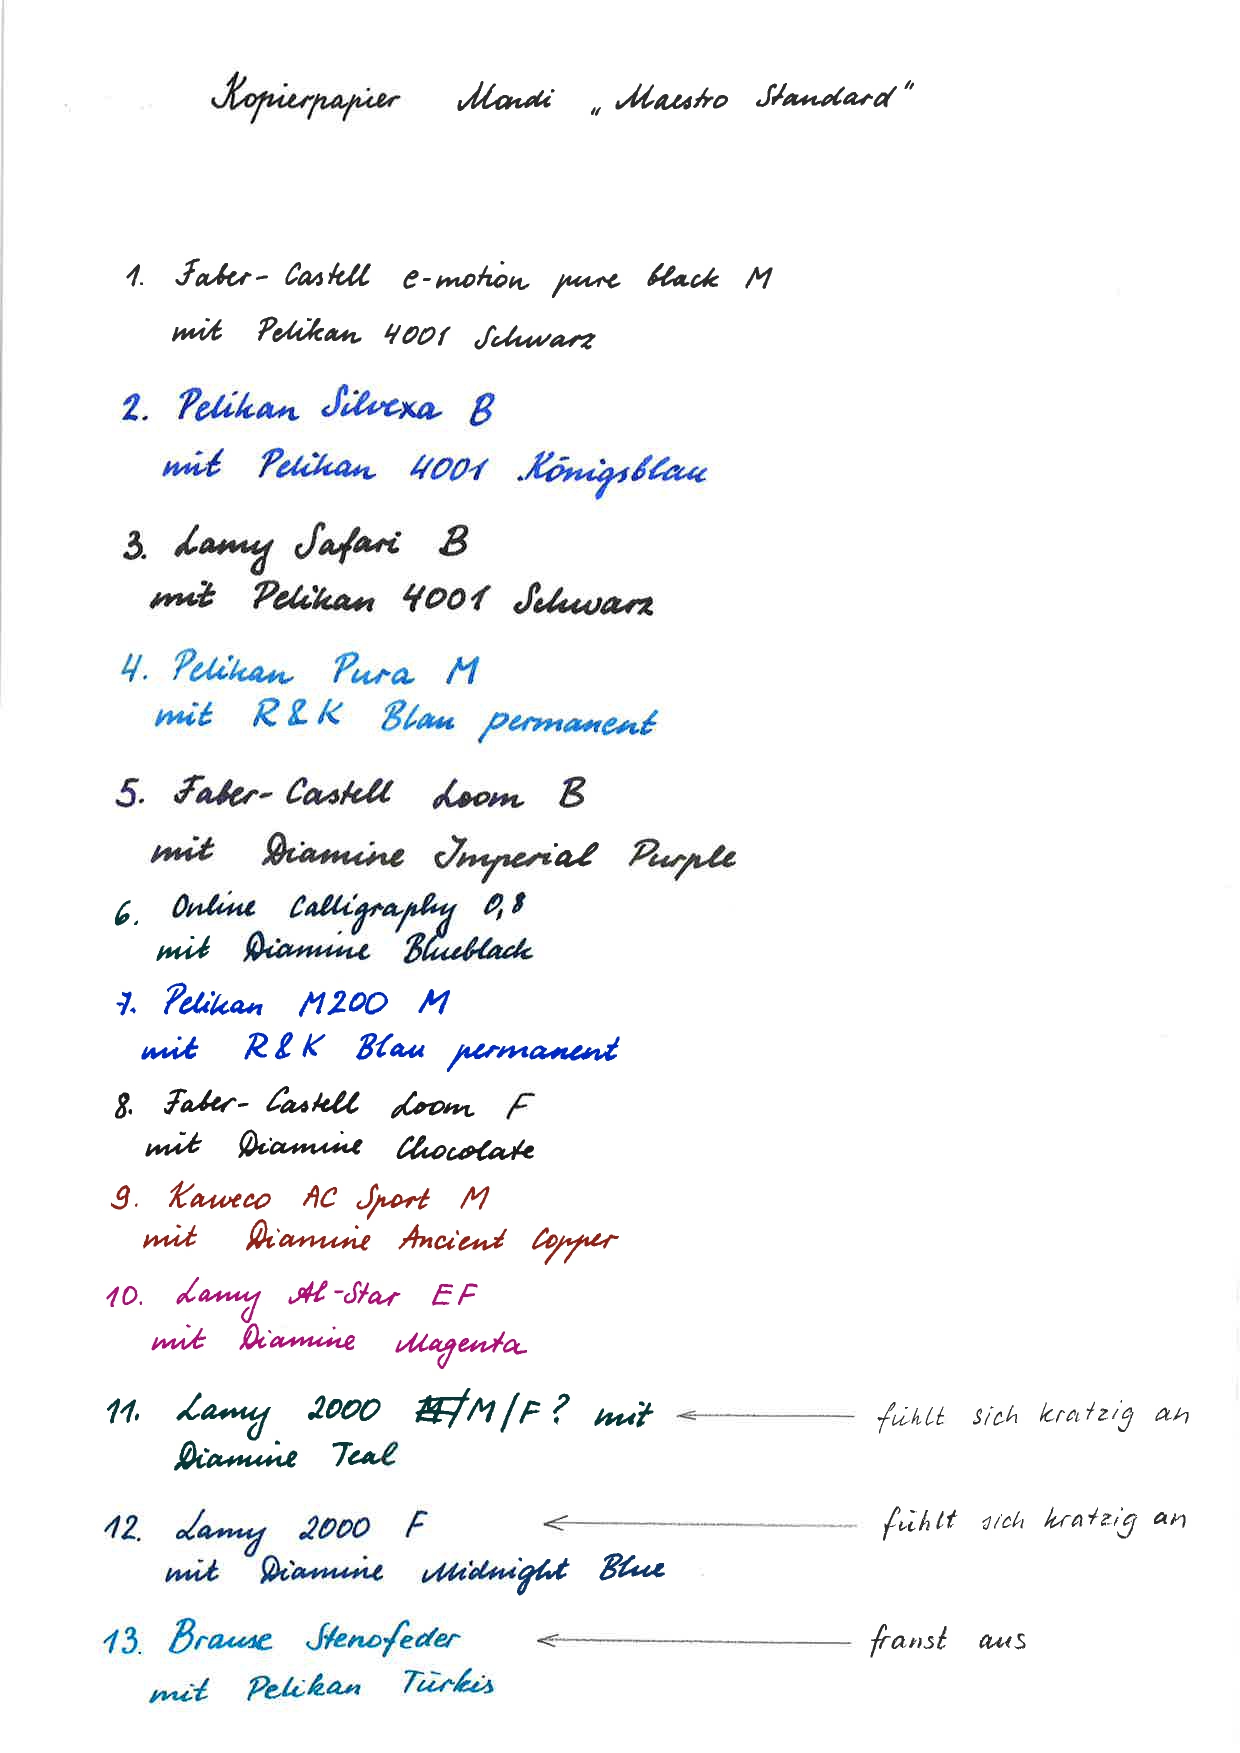 Kopierpapier Mondi „Maestro Standard"
1. Faber-Castell e-motion pure black M
mit Pelikan 4001 Schwarz
2. Pelikan Silvexa B
mit Pelikan 4001 Königsblau
3. Lamy Safari B
mit Pelikan 4001 Schwarz
4. Pelikan Pura M
mit R&K Blau permanent
5. Faber-Castell Loom B
mit Diamine Imperial Purple
6. Online Calligraphy 0,8
mit Diamine Blueblack
7. Pelikan M200 M
mit R&K Blau permanent
8. Faber-Castell Loom F
mit Diamine Chocolate
9. Kaweco AC Sport M
mit Diamine Ancient Copper
10. Lamy Al-Star EF
mit Diamine Magenta
11. Lamy 2000 M/F? mit ← fühlt sich kratzig an
Diamine Teal
12. Lamy 2000 F ← fühlt sich kratzig an
mit Diamine Midnight Blue
13. Brause Stenofeder ← franst aus
mit Pelikan Türkis